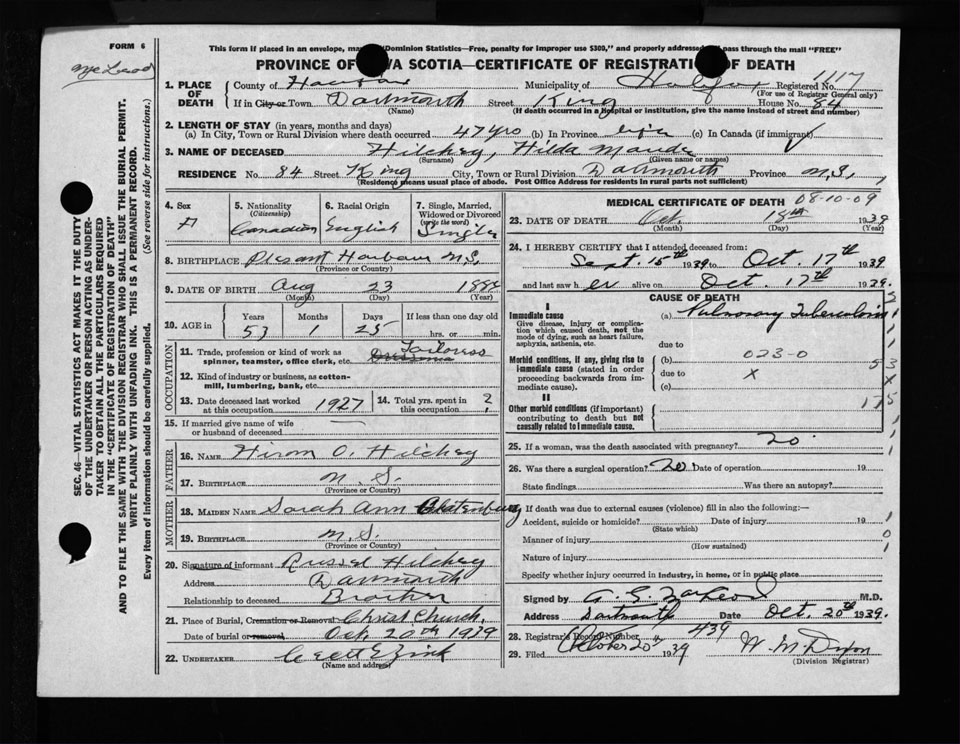 FORM 6
This form if placed in an envelope, "Dominion Statistics—Free, penalty for improper use $300," and properly addressed pass through the mail "FREE"
PROVINCE OF VA SCOTIA—CERTIFICATE OF REGISTRATION OF DEATH
1. PLACE OF DEATH County of Municipality of Halifax Registered No. 1117
(For use of Registrar General only)
If in City or Town Dartmouth Street King House No. 84
(Name) (If death occurred in a Hospital or institution, give the name instead of street and number)
2. LENGTH OF STAY (in years, months and days)
(a) In City, Town or Rural Division where death occurred 47 yrs (b) In Province life (c) In Canada (if immigrant)
3. NAME OF DECEASED Hilchey, Hilda Maude
(Surname) (Given name or names)
RESIDENCE No. 84 Street King City, Town or Rural Division Dartmouth Province N.S.
(Residence means usual place of abode. Post Office Address for residents in rural parts not sufficient)
4. Sex F
5. Nationality (Citizenship) Canadian
6. Racial Origin English
7. Single, Married, Widowed or Divorced (write the word) Single
8. BIRTHPLACE Plesant Harbour N.S.
(Province or Country)
9. DATE OF BIRTH Aug 23
(Month) (Day) (Year)
10. AGE in Years Months Days If less than one day old
53 1 25 hrs. or min.
OCCUPATION
11. Trade, profession or kind of work as spinner, teamster, office clerk, etc. Tailoress
12. Kind of industry or business, as cotton-mill, lumbering, bank, etc.
13. Date deceased last worked at this occupation 1927
14. Total yrs. spent in this occupation ?
15. If married give name of wife or husband of deceased —
FATHER
16. NAME Hirom O. Hilchey
17. BIRTHPLACE N.S.
(Province or Country)
MOTHER
18. MAIDEN NAME Sarah Ann
19. BIRTHPLACE N.S.
(Province or Country)
20. Signature of informant Hilchey
Address Dartmouth
Relationship to deceased Brother
21. Place of Burial, Cremation or Removal Christ Church
Date of burial or removal Oct. 20th 1939
22. UNDERTAKER Zink
(Name and address)
MEDICAL CERTIFICATE OF DEATH 08-10-09
23. DATE OF DEATH Oct. 18th 1939
(Month) (Day) (Year)
24. I HEREBY CERTIFY that I attended deceased from:
Sept. 15th 1939 to Oct. 17th 1939
and last saw her alive on Oct. 17th 1939.
CAUSE OF DEATH
I
Immediate cause (a) Pulmonary Tuberculosis
Give disease, injury or complication which caused death, not the mode of dying, such as heart failure, asphyxia, asthenia, etc.
due to
Morbid conditions, if any, giving rise to immediate cause (stated in order proceeding backwards from immediate cause).
(b) 023-0
due to X
(c)
II
Other morbid conditions (if important) contributing to death but not causally related to immediate cause.
25. If a woman, was the death associated with pregnancy? no.
26. Was there a surgical operation? no Date of operation 19
State findings Was there an autopsy?
27. If death was due to external causes (violence) fill in also the following:—
Accident, suicide or homicide? Date of injury 19
(State which)
Manner of injury
(How sustained)
Nature of injury
Specify whether injury occurred in industry, in home, or in public place
Signed by M.D.
Address Dartmouth Date Oct. 20th 1939.
28. Registrar's Record Number 439
29. Filed October 20th 1939
(Division Registrar)
SEC. 46—VITAL STATISTICS ACT MAKES IT THE DUTY
OF THE UNDERTAKER OR PERSON ACTING AS UNDER-
TAKER TO OBTAIN ALL THE PARTICULARS REQUIRED
IN THE "CERTIFICATE OF REGISTRATION OF DEATH"
AND TO FILE THE SAME WITH THE DIVISION REGISTRAR WHO SHALL ISSUE THE BURIAL PERMIT.
WRITE PLAINLY WITH UNFADING INK. THIS IS A PERMANENT RECORD.
Every item of information should be carefully supplied. (See reverse side for instructions.)